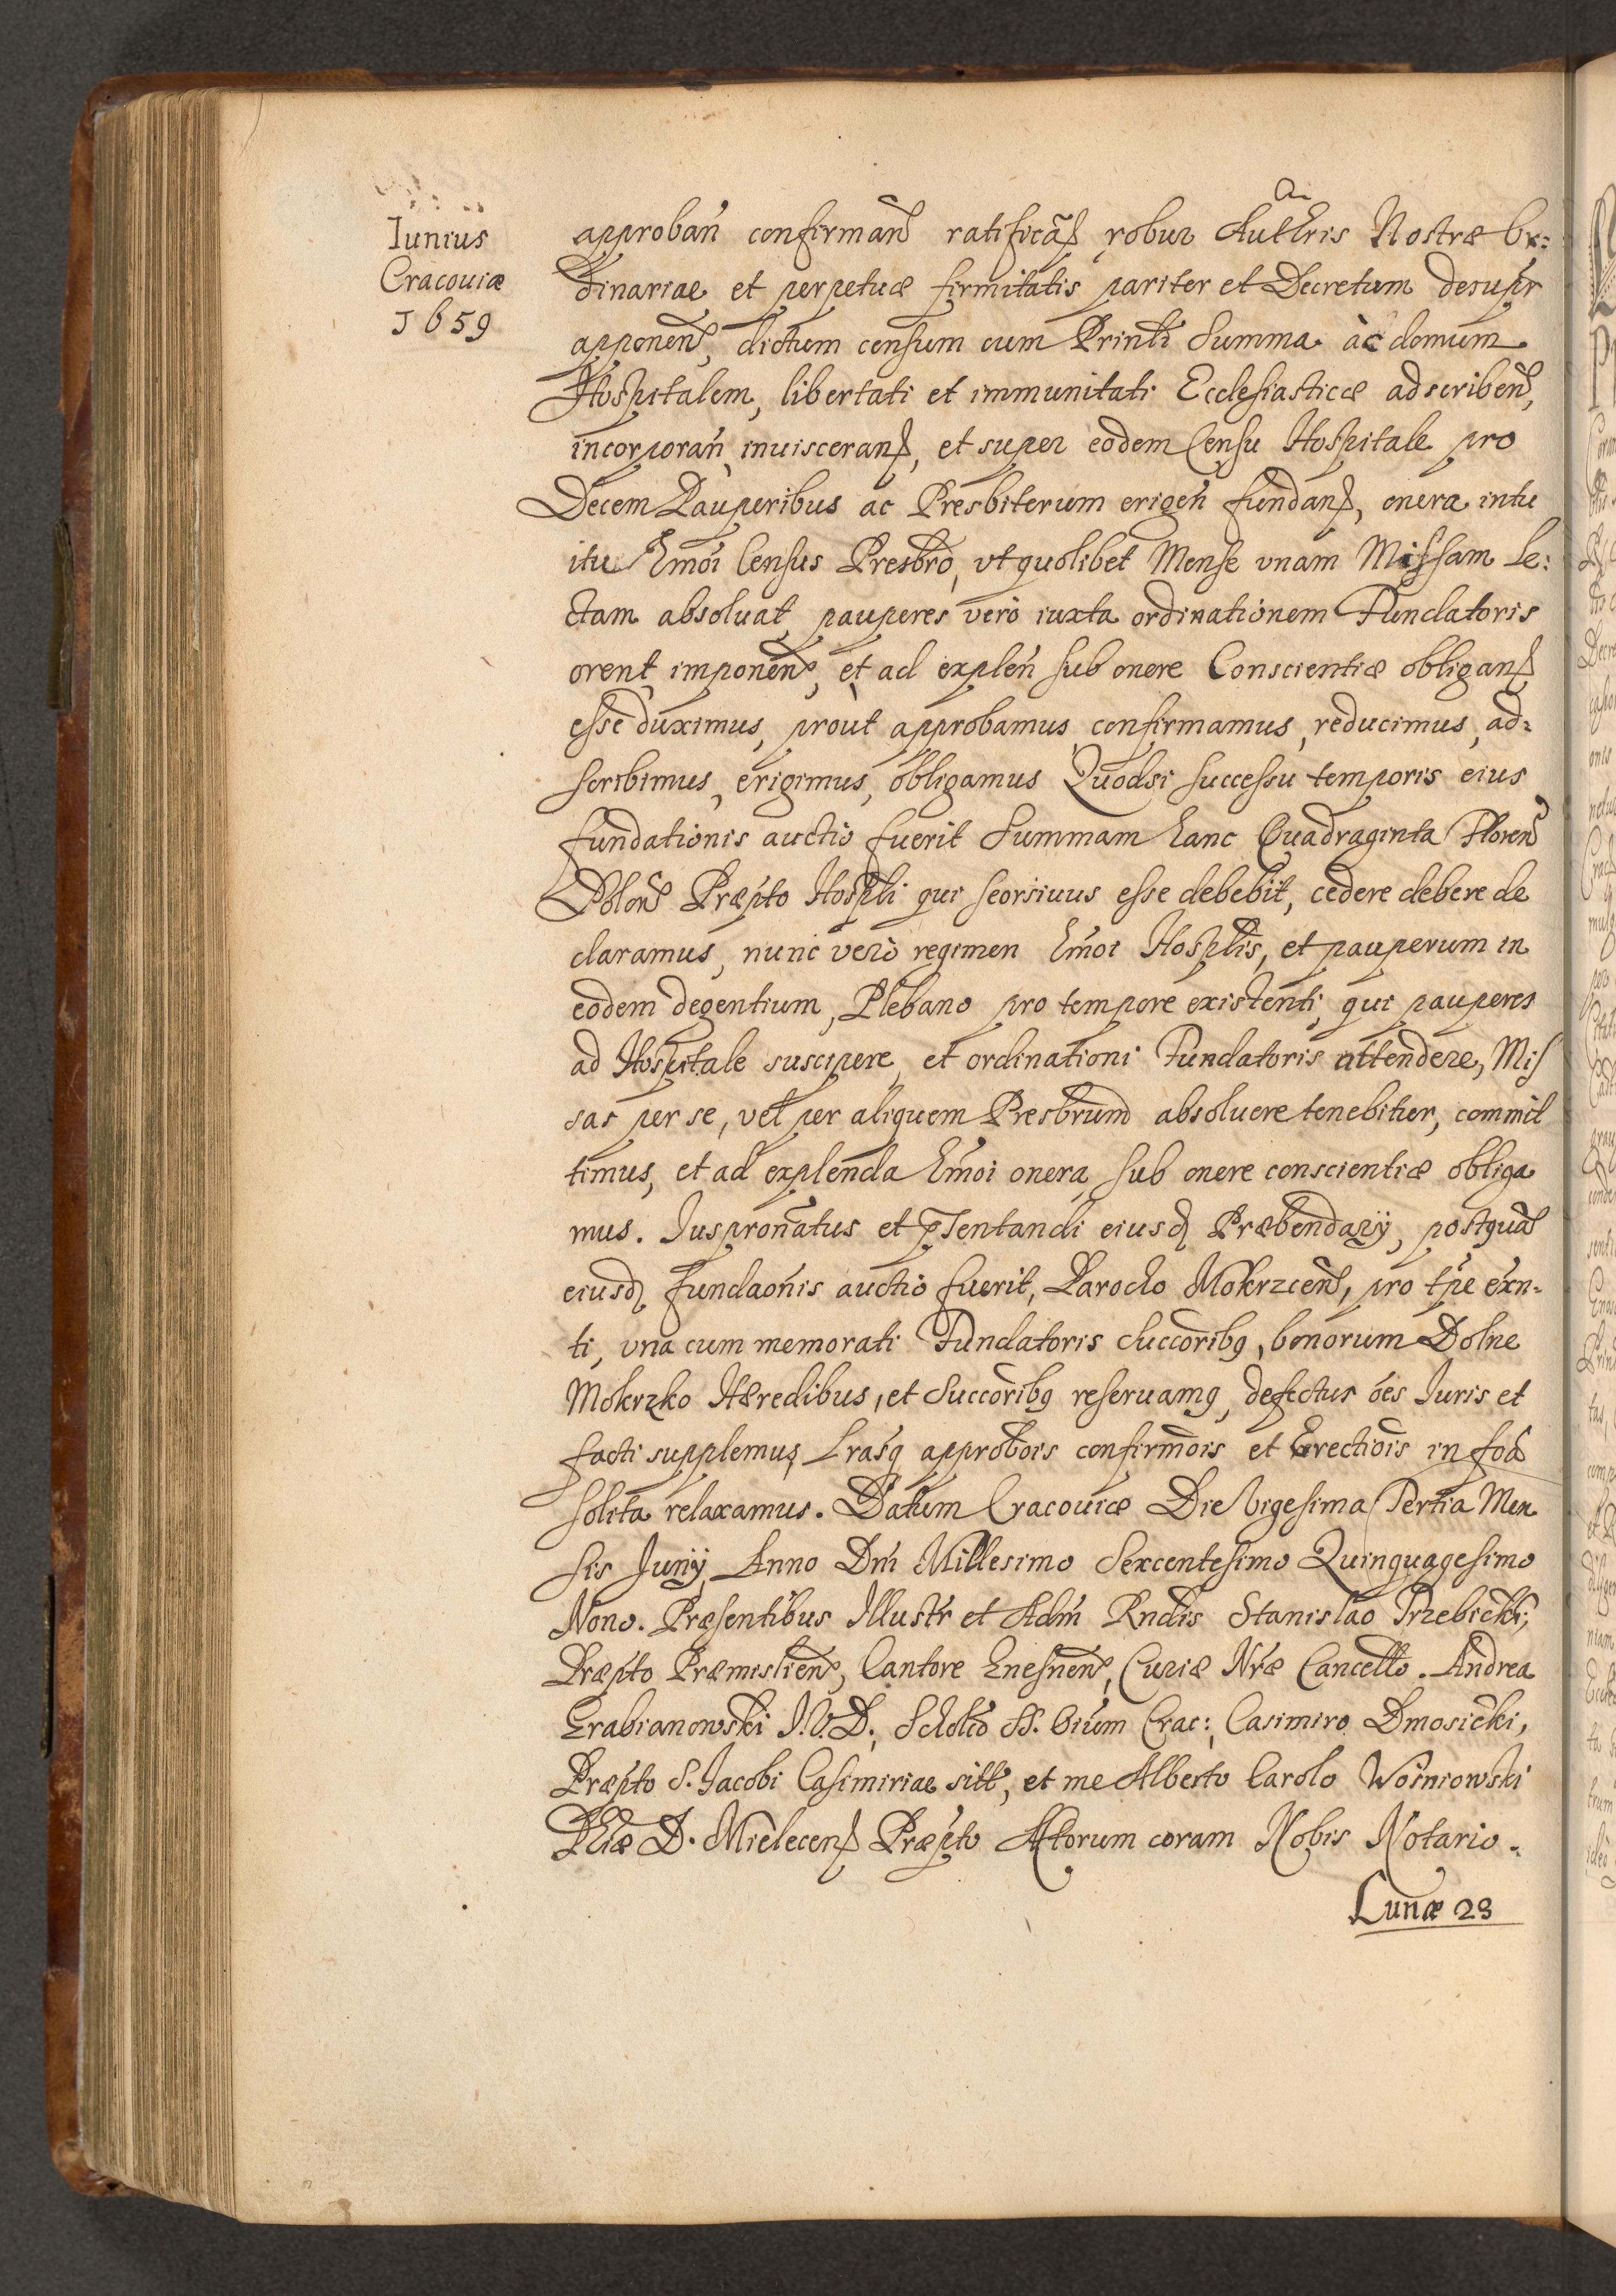 Iunius
Cracouiæ
1659
approbañ confirmand ratificãd robur Authris Nostræ Or:
dinariae et perpetuæ firmitatis pariter et Decretum desupr
apponend, dictum censum cum Printi Summa ac domum
Hospitalem, libertati et immunitati Ecclesiasticæ adscribend,
incorporañ, inuiscerand, et super eodem Censu Hospitale pro
Decem Pauperibus ac Presbiterum erigeñ fundand, onera intu
itu hmõi Census Presbrõ, vt quolibet Mense vnam Missam le:
ctam absoluat, pauperes verò iuxta ordinationem Fundatoris
orent, imponend, et ad expleñ sub onere Conscientiæ obligand
esse duximus, prout approbamus, confirmamus, reducimus, ad:
scribimus, erigimus, obligamus Quodsi successu temporis eius
fundationis auctio fuerit Summam hanc Quadraginta Floren
Polon Præpto Hospli qui seorsiuus esse debebit, cedere debere de
claramus, nunc verò regimen hmõi Hosplis, et pauperum in
eodem degentium, Plebano pro tempore existenti, qui pauperes
ad Hospitale suscipere, et ordinationi Fundatoris attendere, Mis
sas per se, vel per aliquem Presbrum absoluere tenebitur, commit
timus, et ad explenda hmõi onera sub onere conscientiæ obliga
mus. Iuspronatus et pñtentandi eiusd Præbendarÿ, postquã
eiusd fundaonis auctio fuerit, Parocho Mokrzcens, pro tpe exn-
ti, vna cum memorati Fundatoris Succoribq, bonorum Dolne
Mokrzko Hæredibus, et Succoribq reseruamq, defectus oes Iuris et
facti supplemus, Lrasq approbõis confirmõis et Erectiõis in foã
solita relaxamus. Datum Cracouiæ Die Vigesima Tertia Men
sis Junÿ Anno Dni Millesimo Sexcentesimo Quinquagesimo
Nono. Præsentibus Illustr et Adm Rndis Stanislao Trzebicki,
Præpto Præmislien, Cantore Gnesnen, Curiæ Nræ Cancello. Andrea
Grabianowski I.V.D., Scholco SS. Oium Crac:, Casimiro Dmosicki,
Præpto S. Jacobi Casimiriae sitt, et me Alberto Carolo Wosniowski
Phiæ D. Mielecens Præpto Actorum coram Nobis Notario.
Lunæ 23